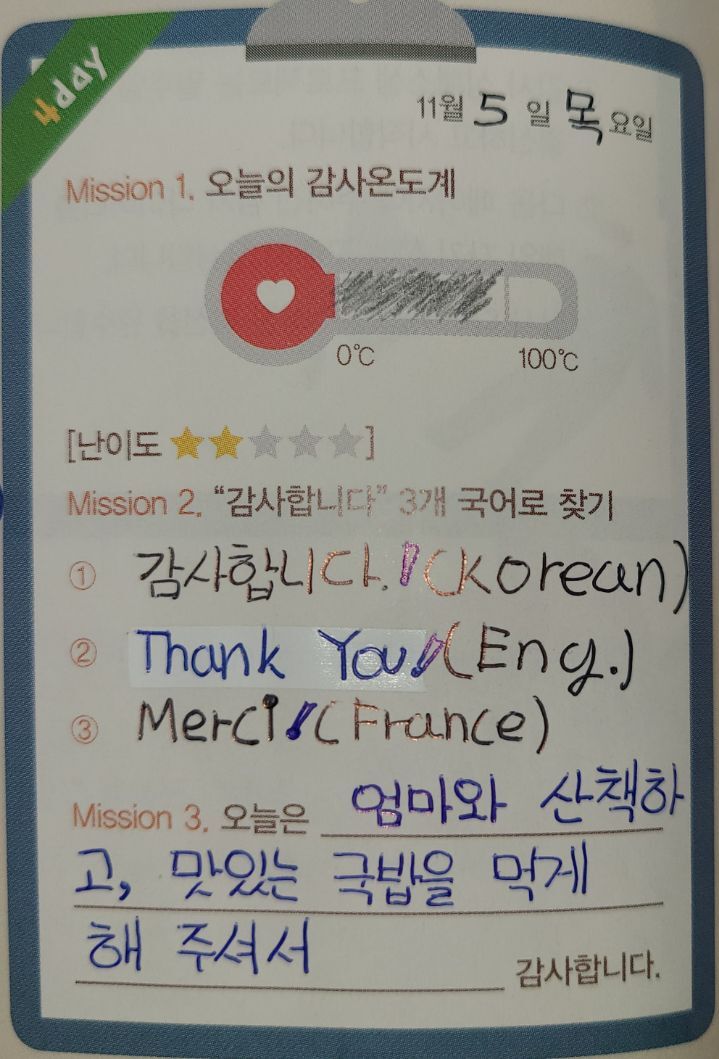 4day
11월 5 일 목요일
Mission 1. 오늘의 감사온도계
0℃ 100℃
[난이도 ★★★★★]
Mission 2. “감사합니다” 3개 국어로 찾기
① 감사합니다.! (Korean)
② Thank You! (Eng.)
③ Merci! (France)
Mission 3. 오늘은 엄마와 산책하
고, 맛있는 국밥을 먹게
해 주셔서 감사합니다.